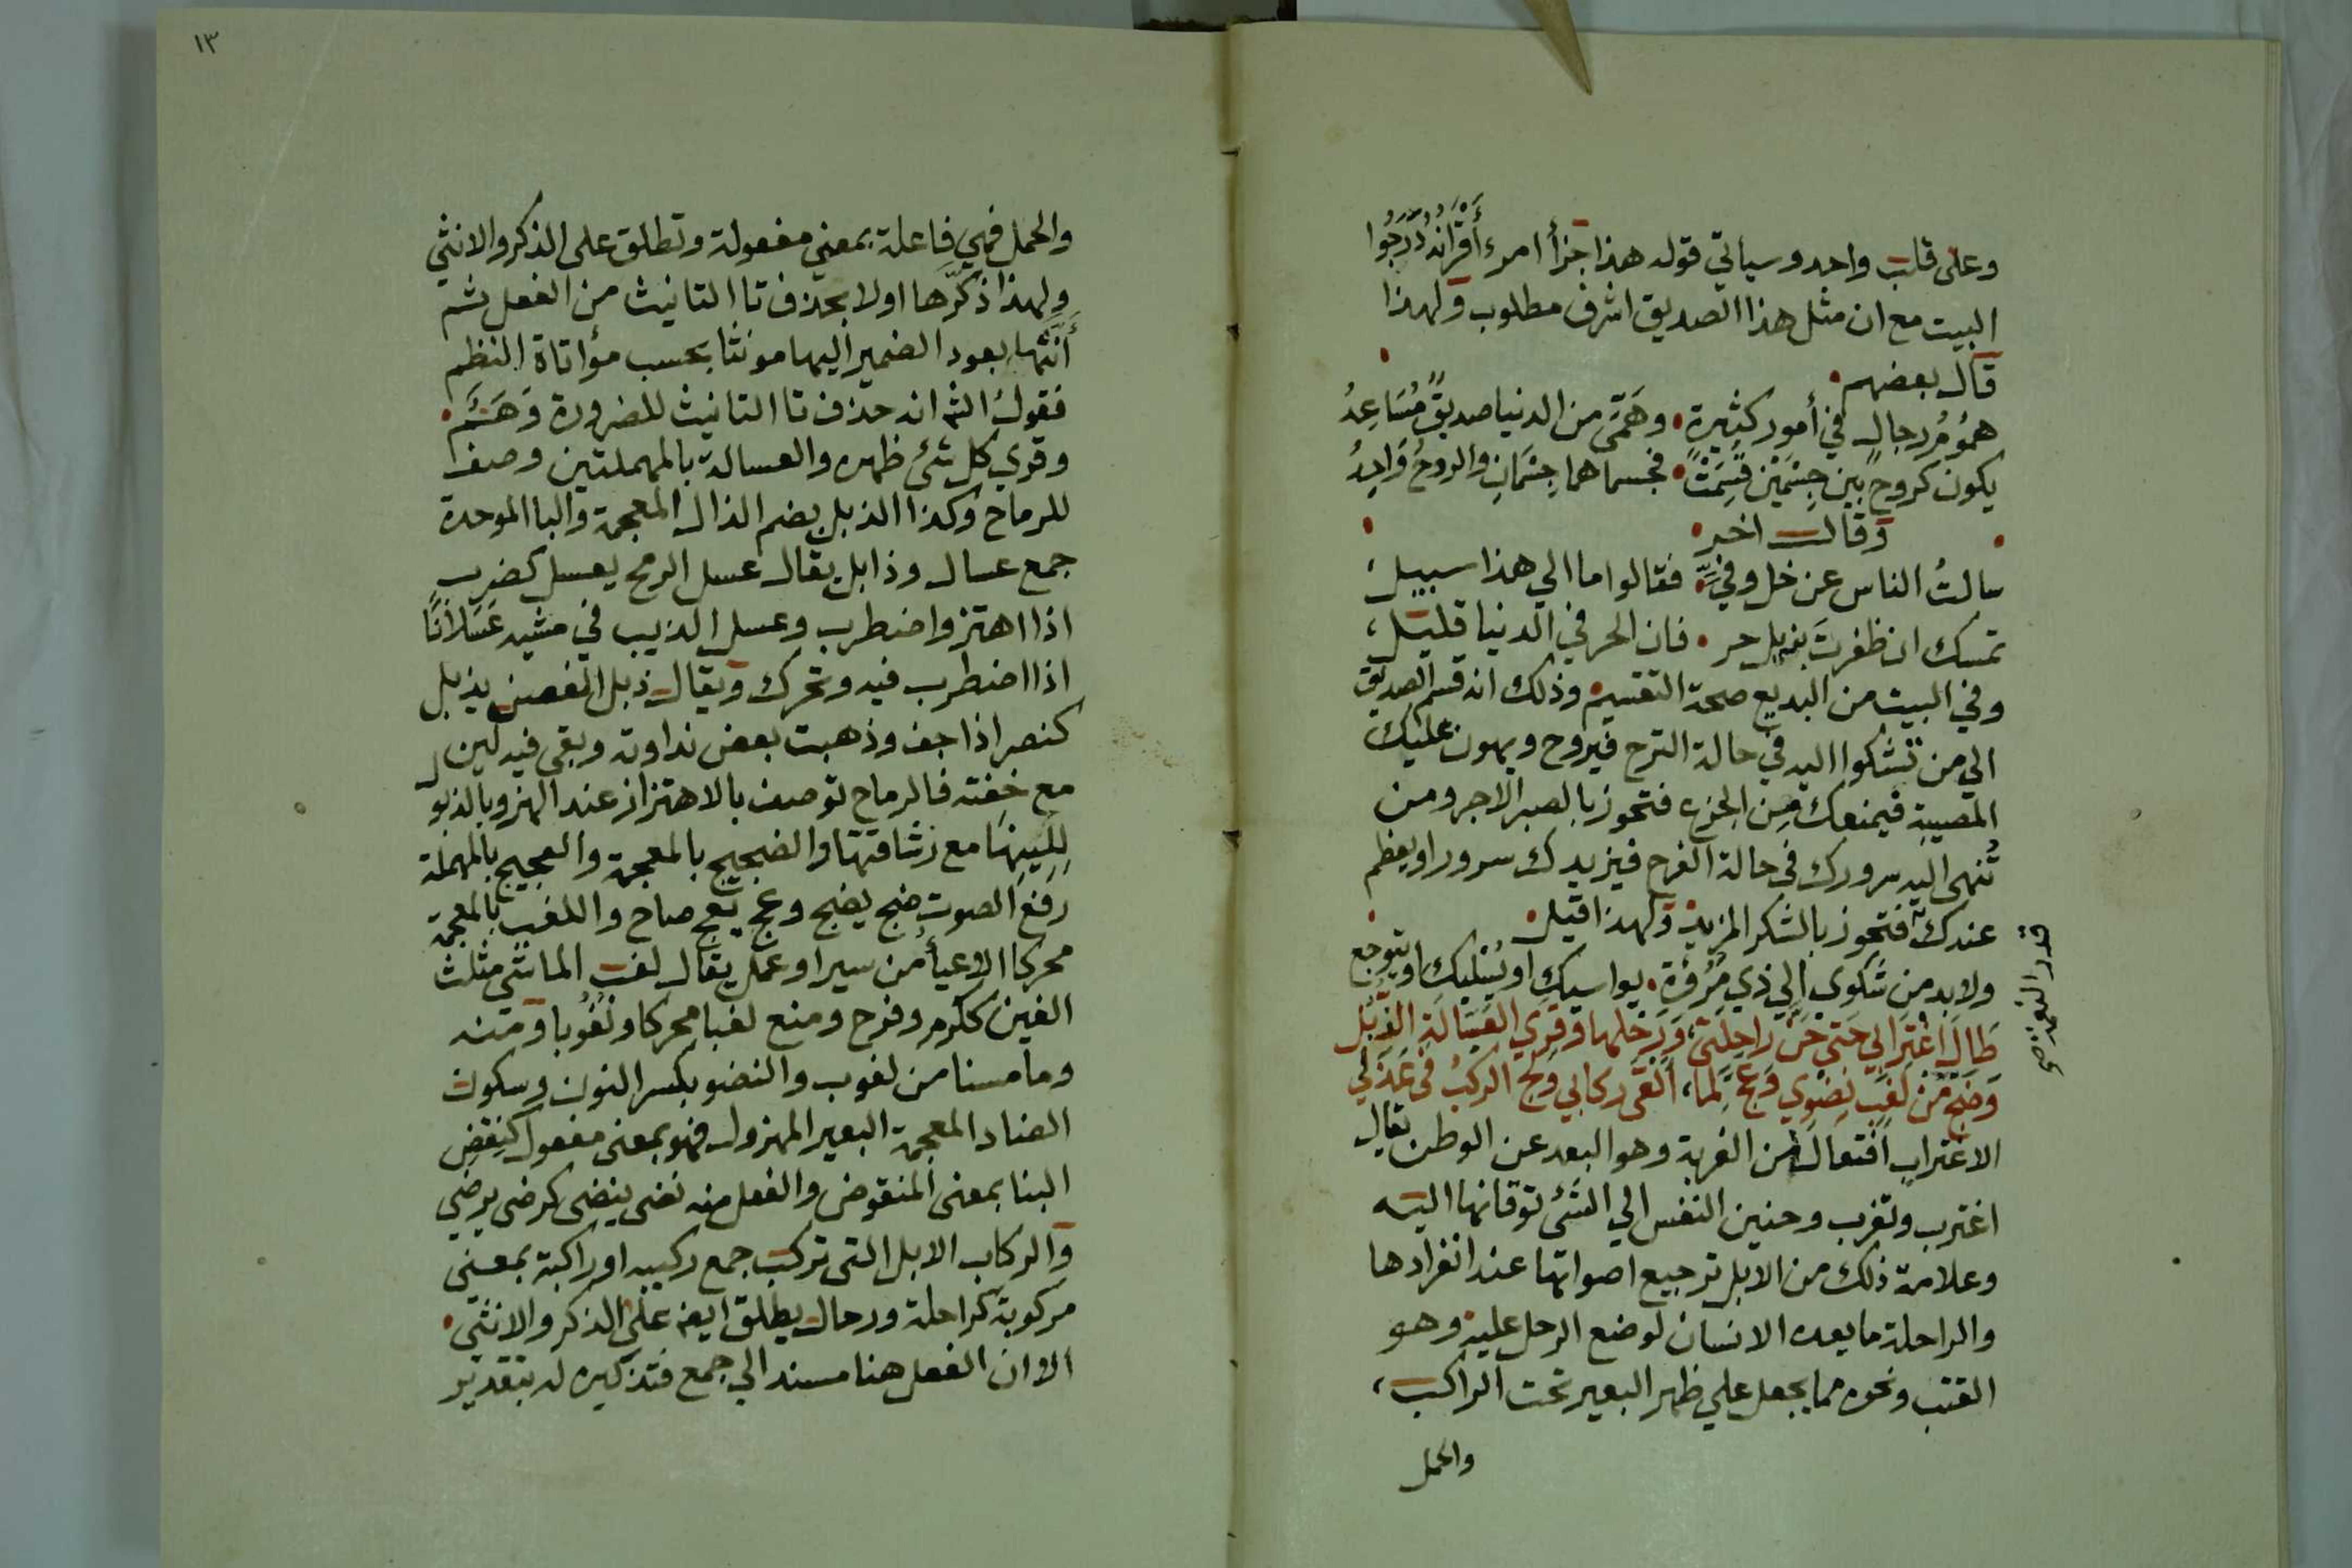 وعلى قلب واحد وسيأتي قوله هذا جزأ امرء أقرانه درجوا
البيت مع ان مثل هذا الصديق اشرف مطلوب ولهذا
قال بعضهم
هموم رجال في أمور كثيرة وهمي من الدنيا صديق مساعد
يكون كروح بين جسمين قسمت فجسماهما جسمان والروح واحد
وقال اخر
سالت الناس عن خل وفي فقالوا ما الي هذا سبيل
تمسك ان ظفرت بذيل حر فان الحر في الدنيا قليل
وفي البيت من البديع صحة التقسيم وذلك انه قسم الصديق
الي من تشكوا اليه في حالة الترح فيروح ويهون عليك
المصيبة فيمنعك من الجزع فتحوز بالصبر الاجر ومن
تنهى اليه سرورك في حالة الفرح فيزيدك سرورا ويعظم
عندك فتحوز بالشكر المزيد ولهذا قيل
ولابد من شكوي الي ذي مروءة يواسيك او يسليك او يتوجع
طال اغترابي حتي حن راحلتي ورحلها وقري العسالة الذبل
وضج من لغب نضوي وعج لما القى ركابي ولج الركب في عذلي
الاغتراب افتعال من الغربة وهو البعد عن الوطن يقال
اغترب وتغرب وحنين النفس الي الشئ توقانها اليه
وعلامة ذلك من الابل ترجيع اصواتها عند انفرادها
والراحلة ما يعده الانسان لوضع الرحل عليه وهو
القتب ونحوه مما يجعل علي ظهر البعير تحت الراكب
والحمل
١٣
والحمل فهي فاعلة بمعني مفعولة وتطلق على الذكر والانثي
ولهذا ذكرها اولا بحذف تا التانيث من الفعل ثم
أنثها بعود الضمير اليها مونثا بحسب مؤاتاة النظم
فقول الشم انه حذف تا التانيث للضرورة وهم
وقري كل شئ ظهره والعسالة بالمهملتين وصف
للرماح وكذا الذبل بضم الذال المعجمة والبا الموحدة
جمع عسال وذابل يقال عسل الرمح يعسل كضرب
اذا اهتز واضطرب وعسل الذيب في مشيه عسلانا
اذا اضطرب فيه وتحرك ويقال ذبل الغصن يذبل
كنصر اذا جف وذهبت بعض نداوته وبقي فيه لين
مع خفته فالرماح توصف بالاهتزاز عند الهز وبالذبول
للينها مع رشاقتها والضجيج بالمعجمة والعجيج بالمهملة
رفع الصوت ضج يضج وعج يعج صاح واللغب بالمعجمة
محركا الاعيأ من سير او عمل يقال لغب الماشي مثلث
الغين ككرم وفرح ومنع لغبا محركا ولغوبا ومنه
وما مسنا من لغوب والنضو بكسر النون وسكون
الضاد المعجمة البعير المهزول فهو بمعنى مفعول كنقض
البنا بمعنى المنقوض والفعل منه نضي ينضى كرضي يرضي
والركاب الابل التي تركب جمع ركيبه او راكبة بمعني
مركوبة كراحلة ورحال يطلق ايضه على الذكر والانثي
الاوان الفعل هنا مسند الي جمع فتذكيره له بتقدير